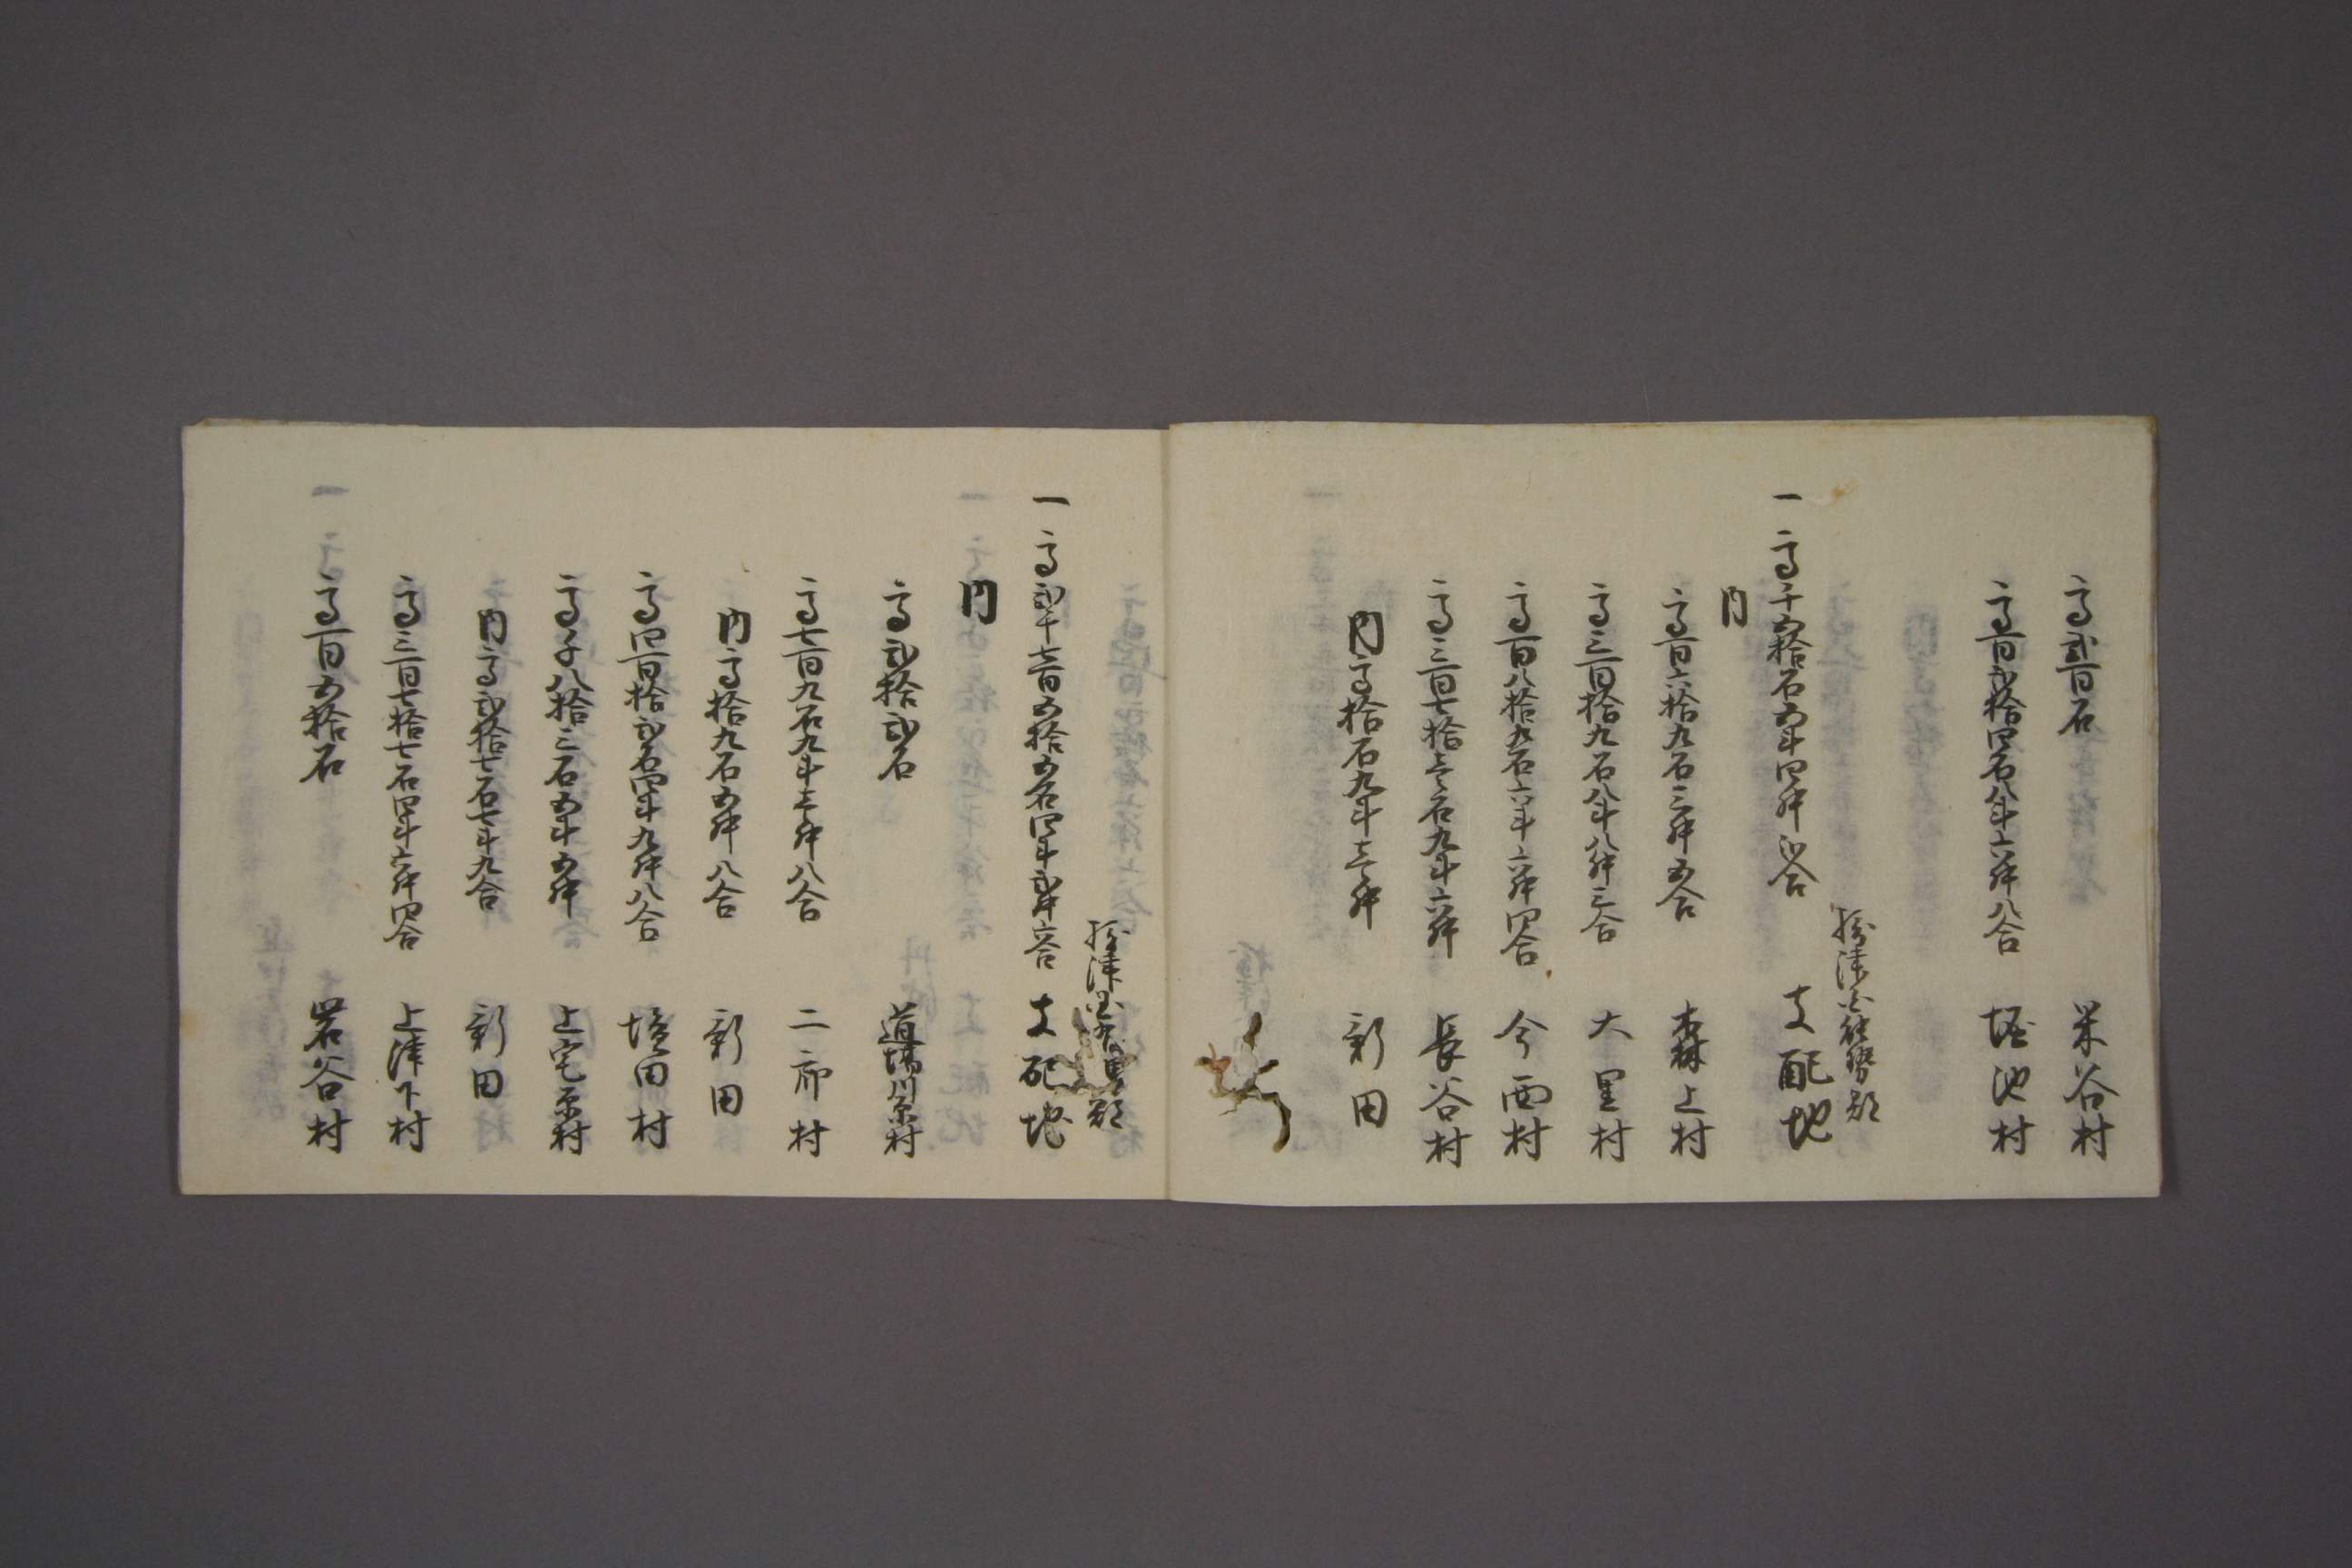 高弐百石 栄谷村
高百弐拾四石八斗六升八合 堀池村
摂津国能勢郡
一高千五拾石五斗四升弐合 支配地
内
高百六拾九石三升五合 森上村
高三百拾九石八斗八升三合 大里村
高百八拾九石六斗六升四合 今西村
高三百七拾壱石九斗六升 長谷村
内高拾石九斗壱升 新田
摂津国有馬郡
一高弐千七百五拾五石四斗弐升六合 支配地
内
高弐拾弐石 道場川原村
高七百九石九斗壱升八合 二郎村
内高拾九石五升八合 新田
高四百拾弐石四斗九升八合 境田村
高千八拾三石五斗五升 上宅原村
内高弐拾七石七斗九合 新田
高三百七拾七石四斗六升四合 上津下村
高百五拾石 岩谷村